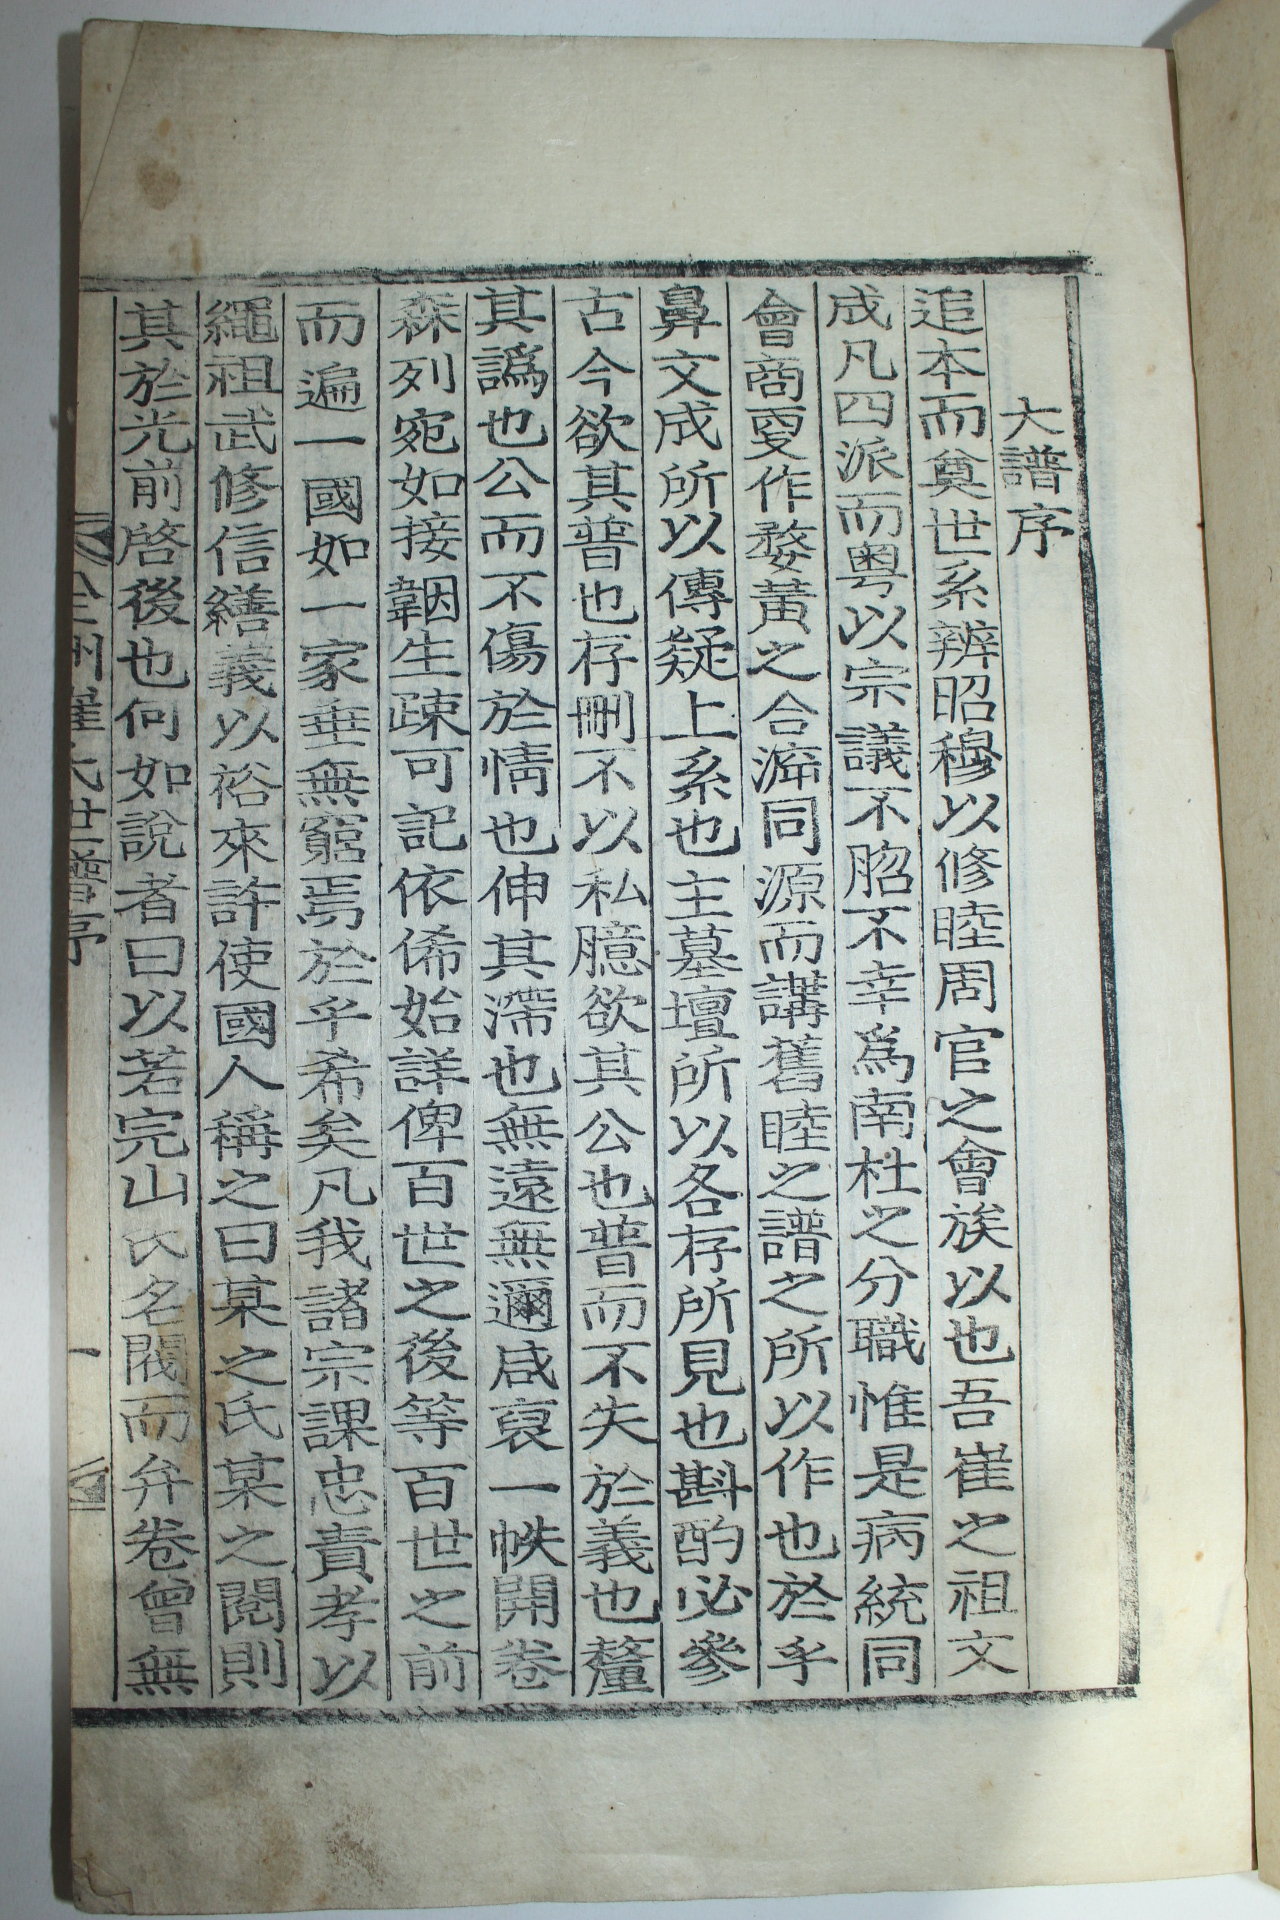 大譜序
追本而奠世系辨昭穆以修睦周官之會族以也吾崔之祖文
成凡四派而粤以宗議不䏚不幸爲南杜之分職惟是病統同
會商更作婺黃之合㳽同源而講舊睦之譜之所以作也於乎
鼻文成所以傳疑上系也主墓壇所以各存所見也斟酌必參
古今欲其普也存刪不以私臆欲其公也普而不失於義也釐
其譌也公而不傷於情也伸其滯也無遠無邇咸裒一帙開卷
森列宛如接韜生疎可記依俙始詳俾百世之後等百世之前
而遍一國如一家垂無窮焉於乎希矣凡我諸宗課忠責孝以
繩祖武修信繕義以裕來許使國人稱之曰某之氏某之閥則
其於光前啓後也何如說者曰以若完山氏名閥而弁卷曾無
全州崔氏世譜序 一